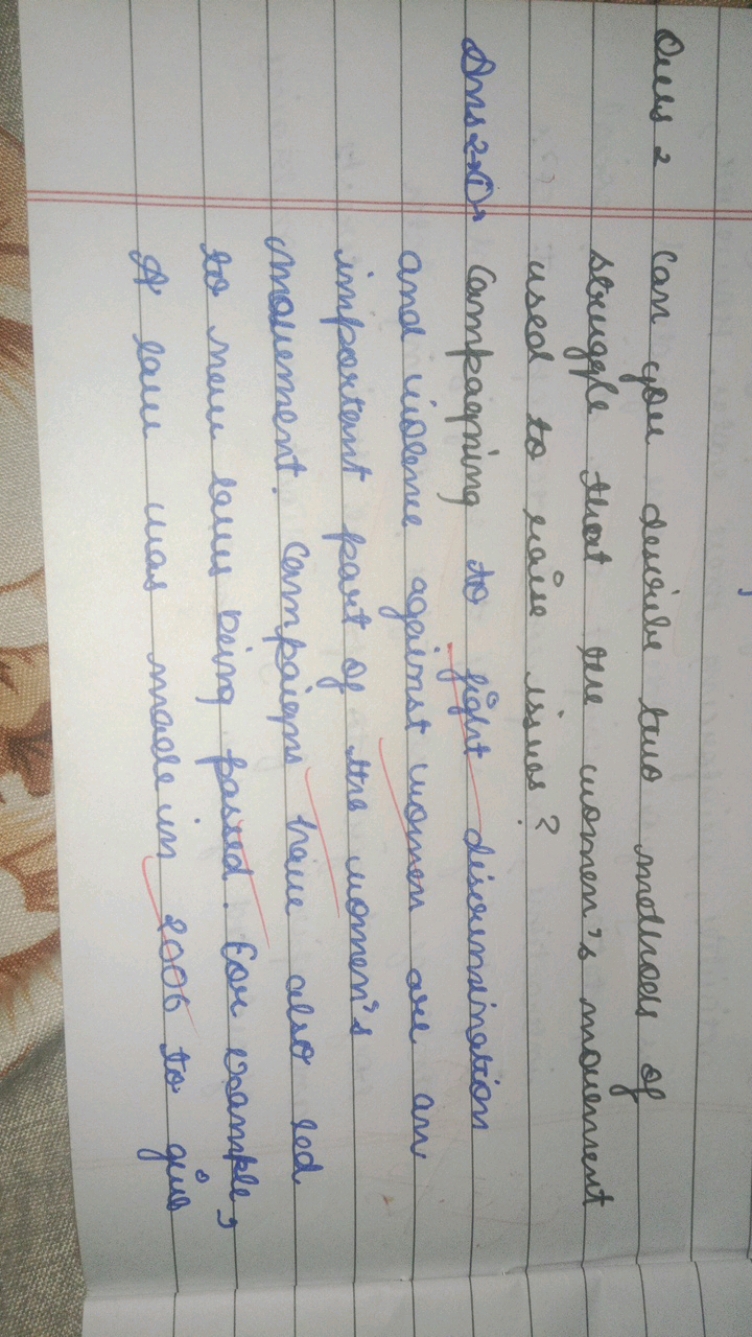 Ques 2 Can you describe two methods of
struggle that the women's movement
used to raise issues?
Ans 2 → ① Campagning to fight discrimination
and violence against women are an
important part of the women's
movement. Campaigns have also led
to new laws being passed. For example,
A law was made in 2006 to give